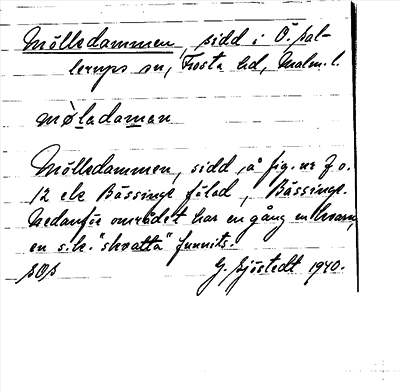 Mölledammen, sidd i Ö. Sal-
lerups sn, Frosta hd, Malm. l.
mø̀ladaman
Mölledammen, sidd. å fig. nr 7 o.
12 etc Bässinge fälad, Bässinge.
Nedanför området har en gång en kvarn,
en s.k. "skvatta" funnits.
SOS G. Sjöstedt 1940.